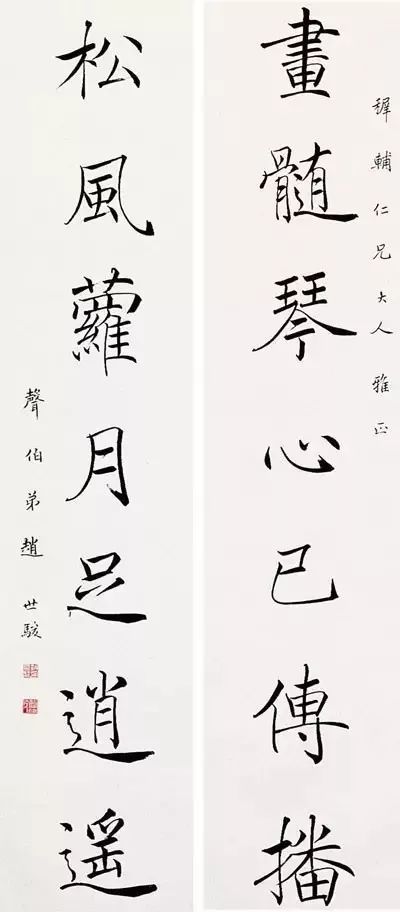 畫髓琴心已傳播
稺輔仁兄大人雅正
松風蘿月足逍遥
聲伯弟趙世駿